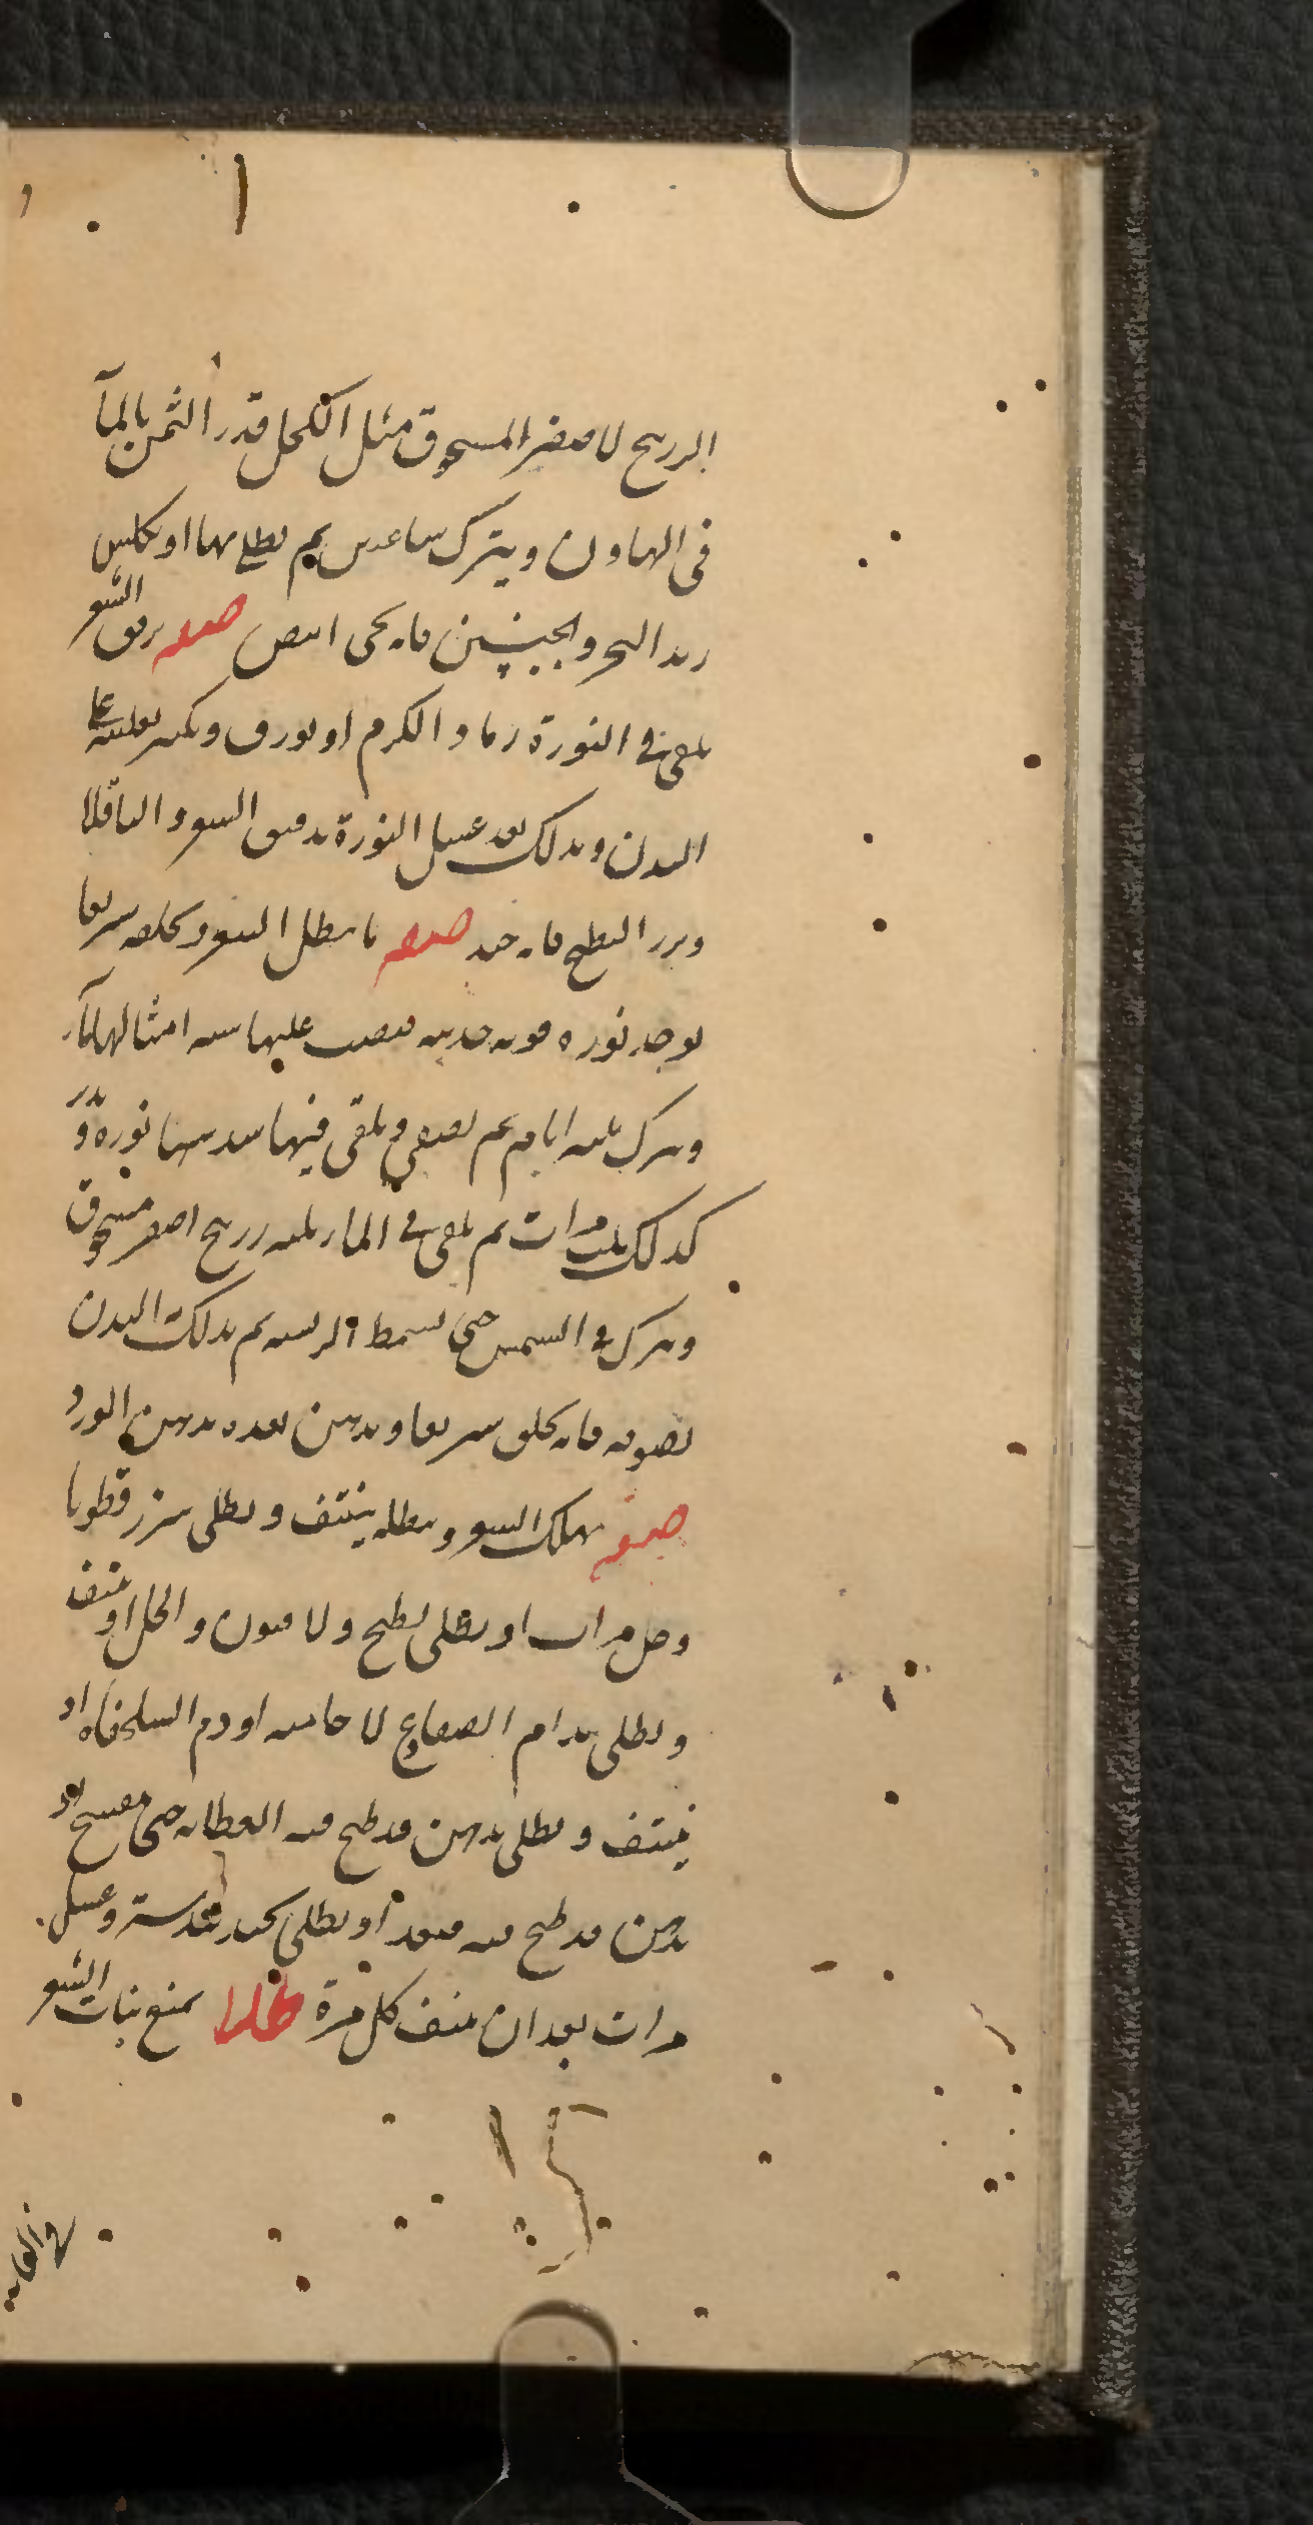 الزرنيخ الاصفر المسحوق مثل الكحل قدر الثمن بالمآ
فى الهاون ويترك ساعتين ثم يطلى بها او بكلس
زبد البحر والجبسين فانه يجى ابيض صفة يرقق الشعر
يلقى في النورة رماد الكرم او بورق ويكثر تقليبه على
البدن ويدلك بعد غسل النورة بدقيق الشعير والباقلا
وبزر البطيخ فانه جيد صفة ما يبطل الشعر ويحلقه سريعا
يوخذ نوره قويه حديثه فيصب عليها ستة امثالها مآء
ويترك ثلثه ايام ثم يصفى ويلقى فيها سدسها نورة
كذلك ثلث مرات ثم يلقى في الماء ثلثه زرنيخ اصفر مسحوق
ويترك في الشمس حتى يسمط الريشه ثم يدلك البدن
بصوفه فانه يحلق سريعا ويدهن بعده بدهن الورد
صفة يهلك الشعر ويبطله ينتف ويطلى ببزر قطونا
وخل مرات او يطلى بطيخ والافيون والخل او ينتف
ويطلى بدم الضفادع الاجاميه او دم السلحفاه او
ينتف ويطلى بدهن قد طبخ فيه العظايه حتى تفسخ او
بدهن قد طبخ فيه قنفذ او يطلى بجندبيدستر وعسل
مرات بعد ان ينتف كل مرة طلاء يمنع نبات الشعر